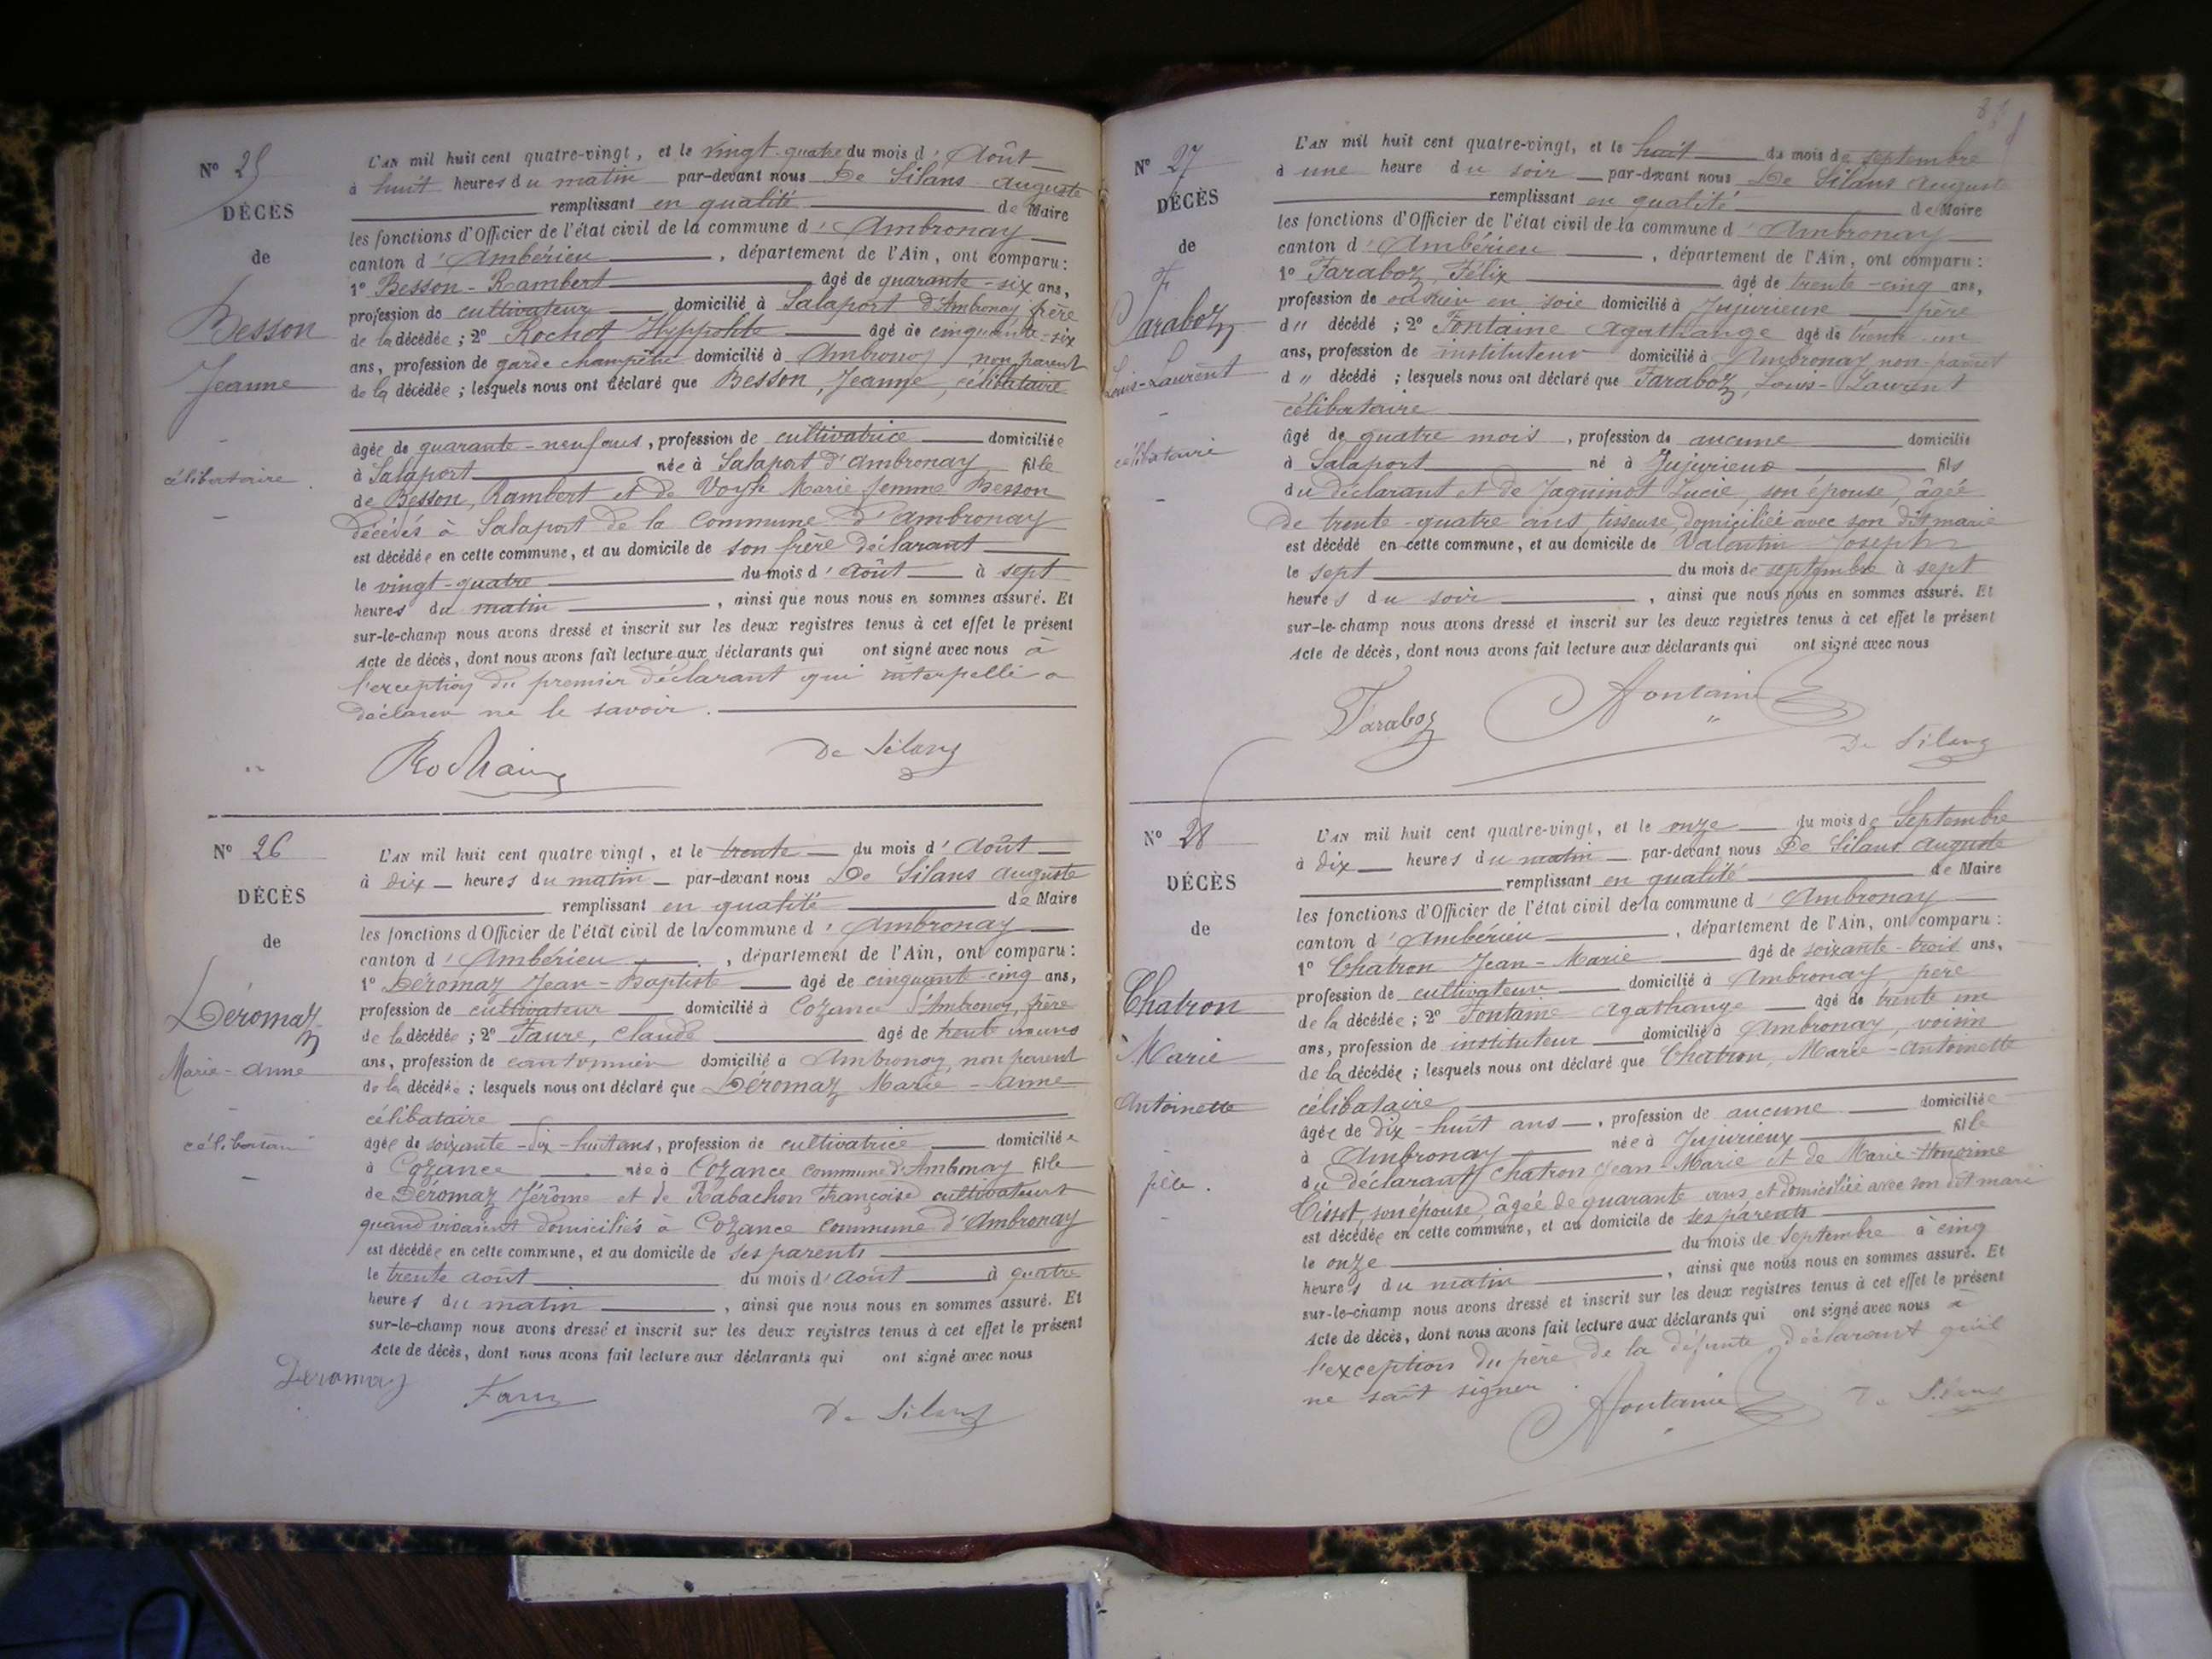 Nº 25
DÉCÈS
de
Besson
Jeanne
célibataire
L'AN mil huit cent quatre-vingt, et le vingt-quatre du mois d'Août
à huit heures du matin par-devant nous De Silans Auguste
remplissant en qualité de Maire
les fonctions d'Officier de l'état civil de la commune d'Ambronay
canton d'Ambérieu, département de l'Ain, ont comparu:
1º Besson-Rambert âgé de quarante-six ans,
profession de cultivateur domicilié à Salaport d'Ambronay frère
de la décédée; 2º Rochet Hyppolite âgé de cinquante-six
ans, profession de garde champêtre domicilié à Ambronay, non parent
de la décédée; lesquels nous ont déclaré que Besson, Jeanne, célibataire
âgée de quarante-neuf ans, profession de cultivatrice domiciliée
à Salaport née à Salaport d'Ambronay fille
de Besson, Rambert et de Marie femme Besson
décédés à Salaport de la commune d'Ambronay
est décédée en cette commune, et au domicile de son frère déclarant
le vingt-quatre du mois d'Août à sept
heures du matin, ainsi que nous nous en sommes assuré. Et
sur-le-champ nous avons dressé et inscrit sur les deux registres tenus à cet effet le présent
Acte de décès, dont nous avons fait lecture aux déclarants qui ont signé avec nous à
l'exception du premier déclarant qui interpellé a
déclaré ne le savoir.
De Silans
Nº 26
DÉCÈS
de
Déromaz
Marie-Anne
célibataire
L'AN mil huit cent quatre vingt, et le trente du mois d'Août
à dix heures du matin par-devant nous De Silans Auguste
remplissant en qualité de Maire
les fonctions d'Officier de l'état civil de la commune d'Ambronay
canton d'Ambérieu, département de l'Ain, ont comparu:
1º Déromaz Jean-Baptiste âgé de cinquante-cinq ans,
profession de cultivateur domicilié à Cozance d'Ambronay, frère
de la décédée; 2º Faure, Claude âgé de trente
ans, profession de cantonnier domicilié à Ambronay, non parent
de la décédée; lesquels nous ont déclaré que Déromaz Marie-Anne
célibataire
âgée de soixante-dix-huit ans, profession de cultivatrice domiciliée
à Cozance née à Cozance commune d'Ambronay fille
de Déromaz Jérôme et de Rabachon Françoise cultivateurs
quand vivaient domiciliés à Cozance commune d'Ambronay
est décédée en cette commune, et au domicile de ses parents
le trente août du mois d'août à quatre
heures du matin, ainsi que nous nous en sommes assuré. Et
sur-le-champ nous avons dressé et inscrit sur les deux registres tenus à cet effet le présent
Acte de décès, dont nous avons fait lecture aux déclarants qui ont signé avec nous
Deromaz Faure De Silans
Nº 27
DÉCÈS
de
Faraboz
Louis-Laurent
célibataire
L'AN mil huit cent quatre-vingt, et le huit du mois de septembre
à une heure du soir par-devant nous De Silans Auguste
remplissant en qualité de Maire
les fonctions d'Officier de l'état civil de la commune d'Ambronay
canton d'Ambérieu, département de l'Ain, ont comparu:
1º Faraboz, Félix âgé de trente-cinq ans,
profession de ouvrier en soie domicilié à Jujurieux père
d" décédé; 2º Fontaine Agathange âgé de trente un
ans, profession de instituteur domicilié à Ambronay non-parent
d" décédé; lesquels nous ont déclaré que Faraboz, Louis-Laurent
célibataire
âgé de quatre mois, profession de aucune domicilié
à Salaport né à Jujurieux fils
du déclarant et de Jaquinot Lucie, son épouse, âgée
de trente-quatre ans, tisseuse, domiciliée avec son dit marie
est décédé en cette commune, et au domicile de Valentin Joseph
le sept du mois de septembre à sept
heures du soir, ainsi que nous nous en sommes assuré. Et
sur-le-champ nous avons dressé et inscrit sur les deux registres tenus à cet effet le présent
Acte de décès, dont nous avons fait lecture aux déclarants qui ont signé avec nous
Faraboz Afontaine De Silans
Nº 28
DÉCÈS
de
Chatron
Marie
Antoinette
fille.
L'AN mil huit cent quatre-vingt, et le onze du mois de Septembre
à dix heures du matin par-devant nous De Silans Auguste
remplissant en qualité de Maire
les fonctions d'Officier de l'état civil de la commune d'Ambronay
canton d'Ambérieu, département de l'Ain, ont comparu:
1º Chatron Jean-Marie âgé de soixante-trois ans,
profession de cultivateur domicilié à Ambronay père
de la décédée; 2º Fontaine Agathange âgé de trente un
ans, profession de instituteur domicilié à Ambronay, voisin
de la décédée; lesquels nous ont déclaré que Chatron, Marie-Antoinette
célibataire
âgée de dix-huit ans, profession de aucune domiciliée
à Ambronay née à Jujurieux fille
du déclarant Chatron Jean-Marie et de Marie-Honorine
son épouse, âgée de quarante ans, et domiciliée avec son dit mari
est décédée en cette commune, et au domicile de ses parents
le onze du mois de Septembre à cinq
heures du matin, ainsi que nous nous en sommes assuré. Et
sur-le-champ nous avons dressé et inscrit sur les deux registres tenus à cet effet le présent
Acte de décès, dont nous avons fait lecture aux déclarants qui ont signé avec nous à
l'exception du père de la défunte, déclarant qu'il
ne sait signer.
Afontaine De Silans